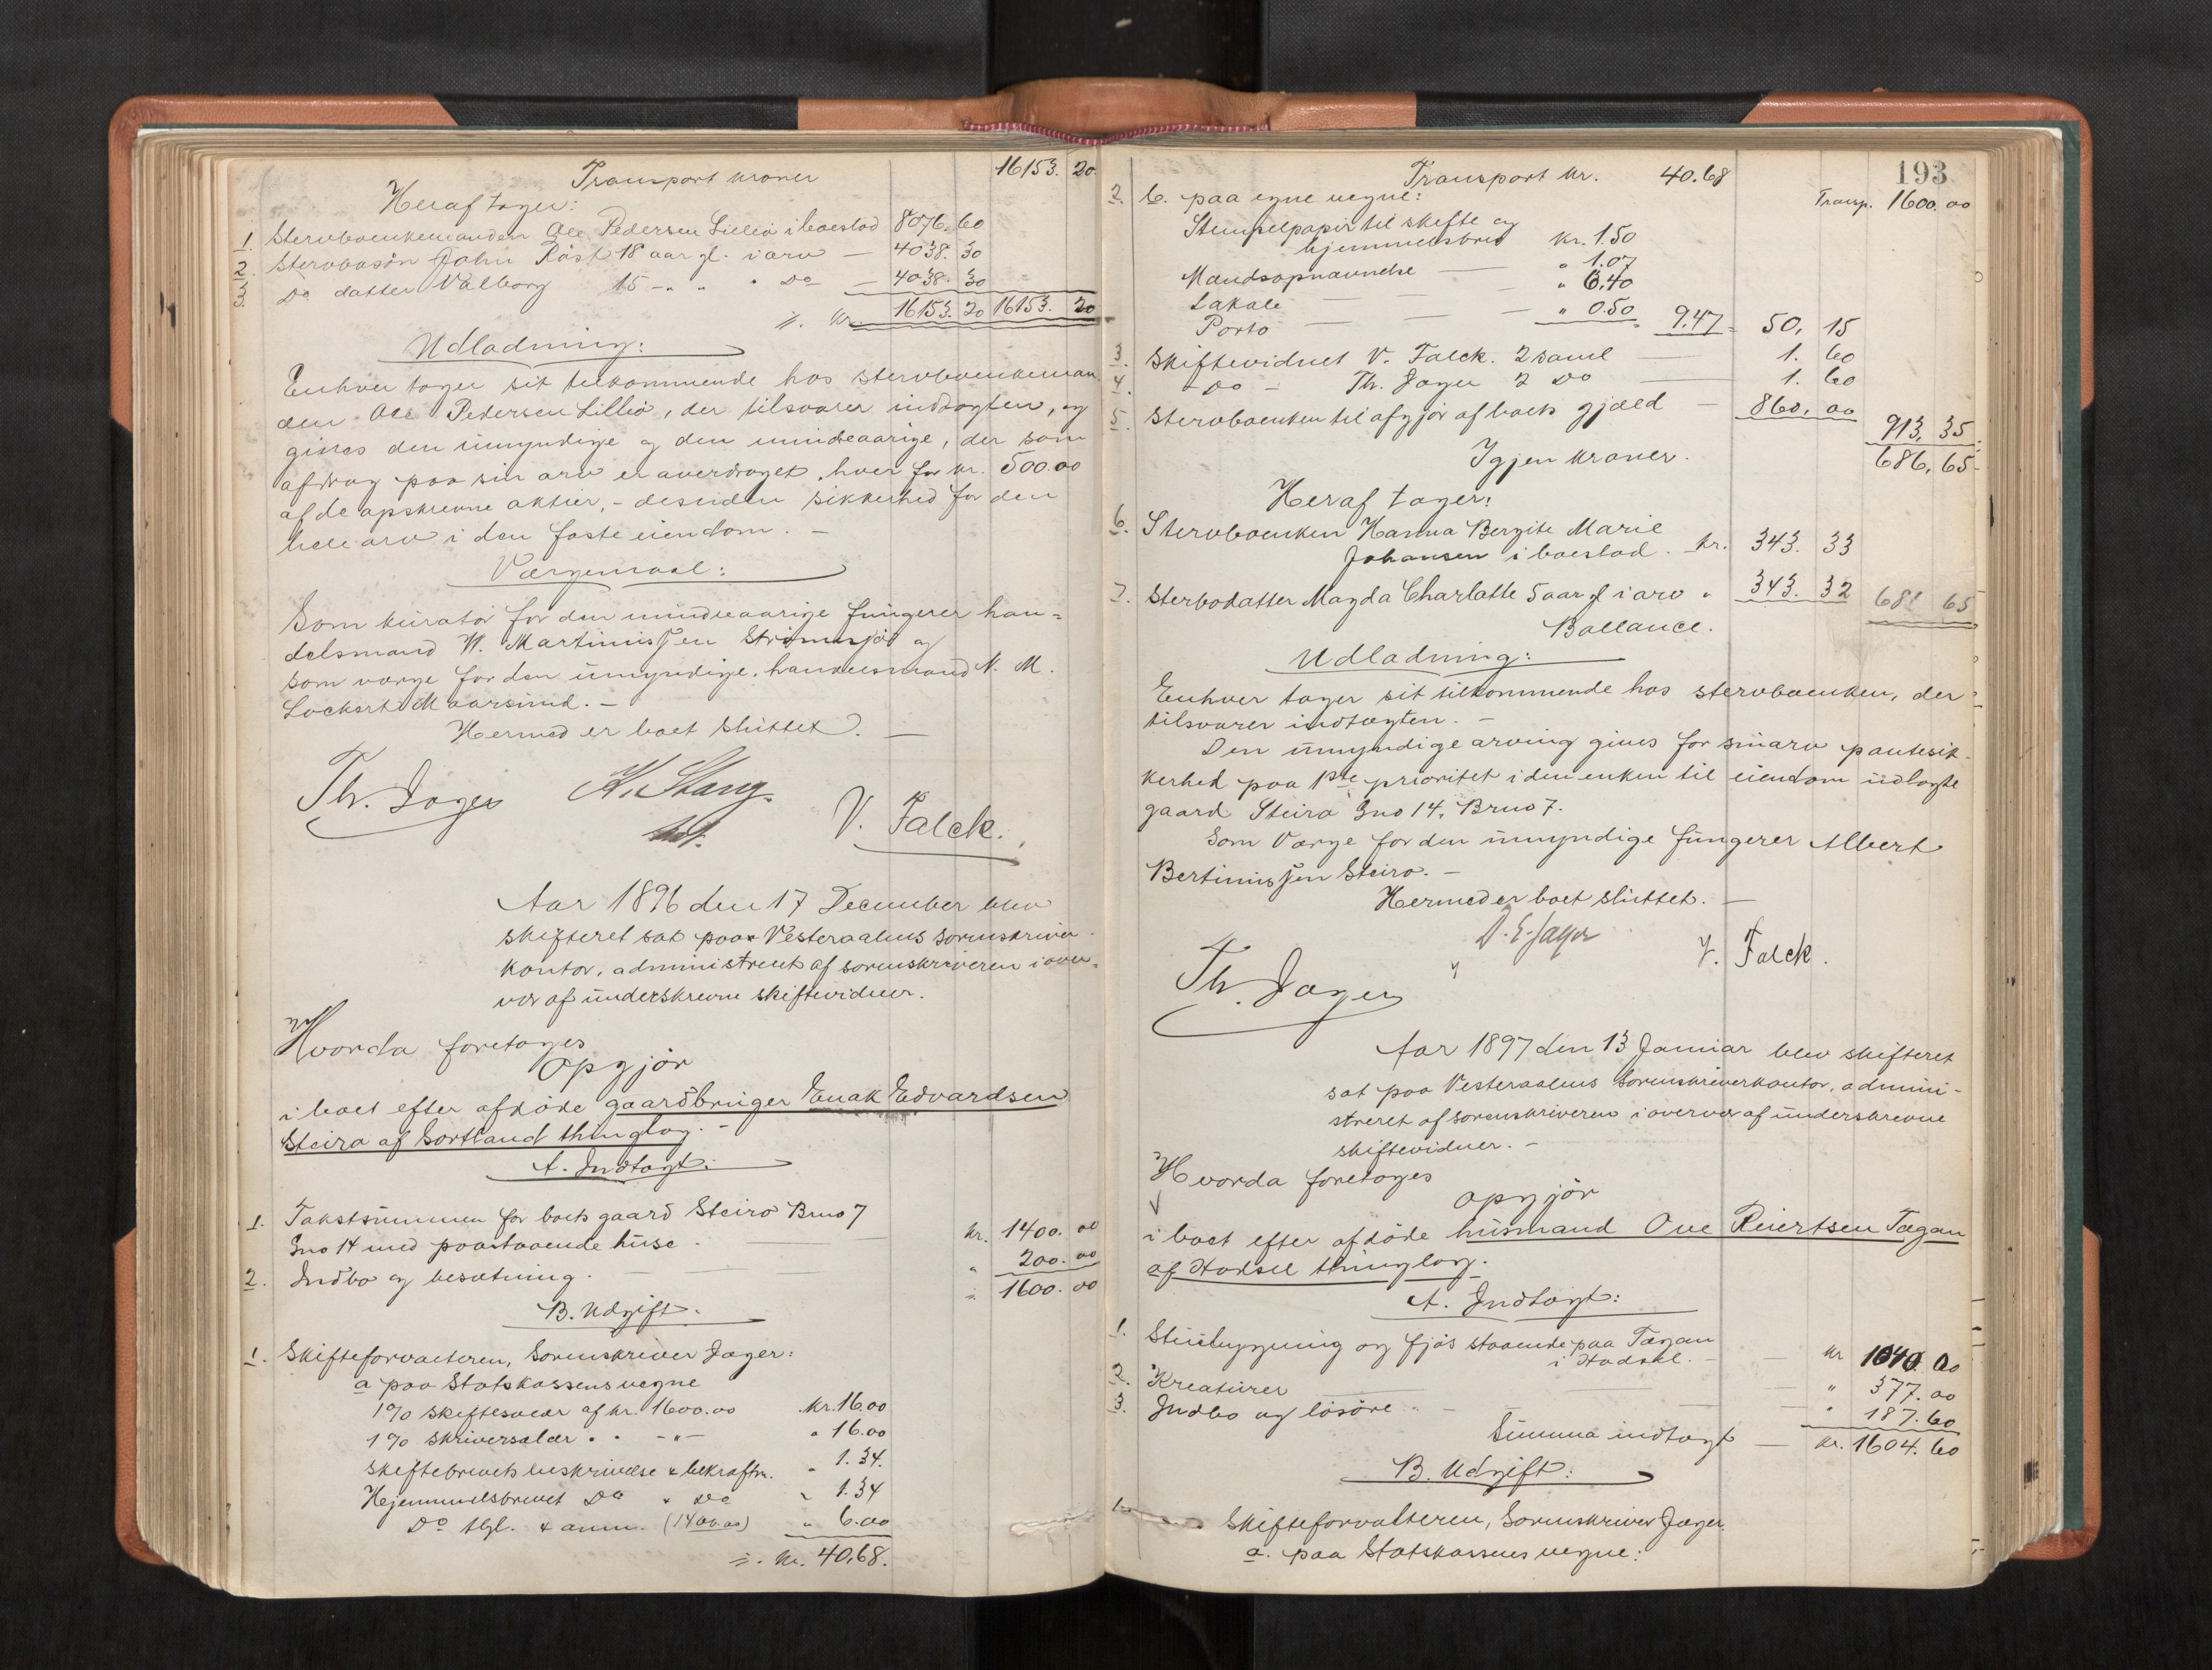 Transport kroner 16153. 20.
Heraf tager:
1. Stervboenkemanden Ole Pedersen Lillió i boeslod 8076. 60
2. Stervbosön John Röst 18 aar gl. i arv — 4038. 30
3. Do datter Valborg 15 - " " Do — 4038. 30
÷. kr. 16153. 20 16153. 20
Udlodning:
Enhver tager sit tilkommende hos stervboenkeman
den Ole Pedersen Lillió, der tilsvarer indtægten, og
gives den umyndige og den mindreaarige, der som
afdrag paa sin arv er overdraget hver for kr. 500.00
af de opskrevne aktier, - desuden sikkerhed for den
hele arv i den faste eiendom. -
Værgemaal:
Som kurator for den mindreaarige fungerer han=
delsmand W. Martinussen Strömsjö og
som værge for den umyndige, handelsmand N. M.
Lockert Maarsund. -
Hermed er boet sluttet. —
Th. Jager K. Stang V. Falck.
kst.
Aar 1896 den 17 December blev
skifteret sat paa Vesteraalens sorenskriver
kontor, administreret af sorenskriveren i over=
vær af underskrevne skiftevidner.
Hvorda foretoges
Opgjör
i boet efter afdöde gaardbruger Enak Edvardsen
Steiro af Sortland thinglag. -
A. Indtægt:
1. Takstsummen for boets gaard Steiro Bruo 7
Gno 14 med paastaaende huse. kr. 1400. 00
2. Indbo og besætning. " 200. 00
÷ 1600. 00
B. Udgift.
1. Skifteforvalteren, Sorenskriver Jager:
a paa Statskassens vegne
1% skiftesalær af kr. 1600.00 kr. 16.00
1% skriversalær " " -"- " 16.00
Skiftebrevets beskrivelse & bekræftn. " 1.34.
Hjemmelsbrevet Do " Do " 1.34
Do thgl. & anm. (1400.00) " 6.00
÷. kr. 40,68.
193
Transport kr. 40.68
Transp. 1600.00
2. b. paa egne vegne:
Stempelpapir til skifte og
hjemmelsbrev kr. 1.50
Mandsopnævnelse — " 1.07
Lokale — " 6.40
Porto — " 0.50 9.47 = 50, 15
3. Skiftevidnet V. Falck. 2 saml — 1. 60
4. - Do - Th. Jager 2 Do — 1. 60
5. Stervboenken til afgjör af boets gjæld — 860, 00
913, 35
Igjen kroner. 686, 65-
Heraf tager:
6. Stervboenken Hanna Bergite Marie
Johansen i boeslod. kr. 343. 33
7. Stervbodatter Magda Charlotte 5 aar gl i arv " 343. 32 686 65
Ballance.
Udlodning:
Enhver tager sit tilkommende hos stervboenken, der
tilsvarer indtægten. -
Den umyndige arving gives for sin arv pantesik-
kerhed paa 1ste prioritet i den enken til eiendom udlagte
gaard Steiro Gno 14, Bruo 7.
Som Værge for den umyndige fungerer Albert
Bertinussen Steiro. -
Hermed er boet sluttet. —
D. E. Jager
Th. Jager V. Falck.
Aar 1897 den 13 Januar blev skifteret
sat paa Vesteraalens Sorenskriverkontor, admini-
streret af sorenskriveren i overvær af underskrevne
skiftevidner. -
Hvorda foretoges
opgjör
i boet efter afdöde husmand Ove Reiertsen Tægan
af Hadsel thinglag.
A. Indtægt:
1. Stuebygning og fjös staaende paa Tægan
i Hadsel. - — kr 1040. 00
2. Kreaturer — " 377. 00
3. Indbo og lösöre " - — " 187. 60
Summa indtægt — kr. 1604. 60
B. Udgift:
1. Skifteforvalteren, Sorenskriver Jager.
a. paa Statskassens vegne: